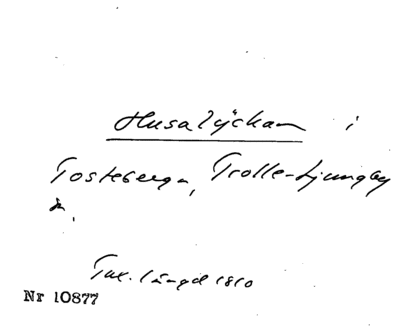 Husalyckan i
Tosteberga, Trolle-Ljungby
sn.
Tax. längd 1810
Nr 10877